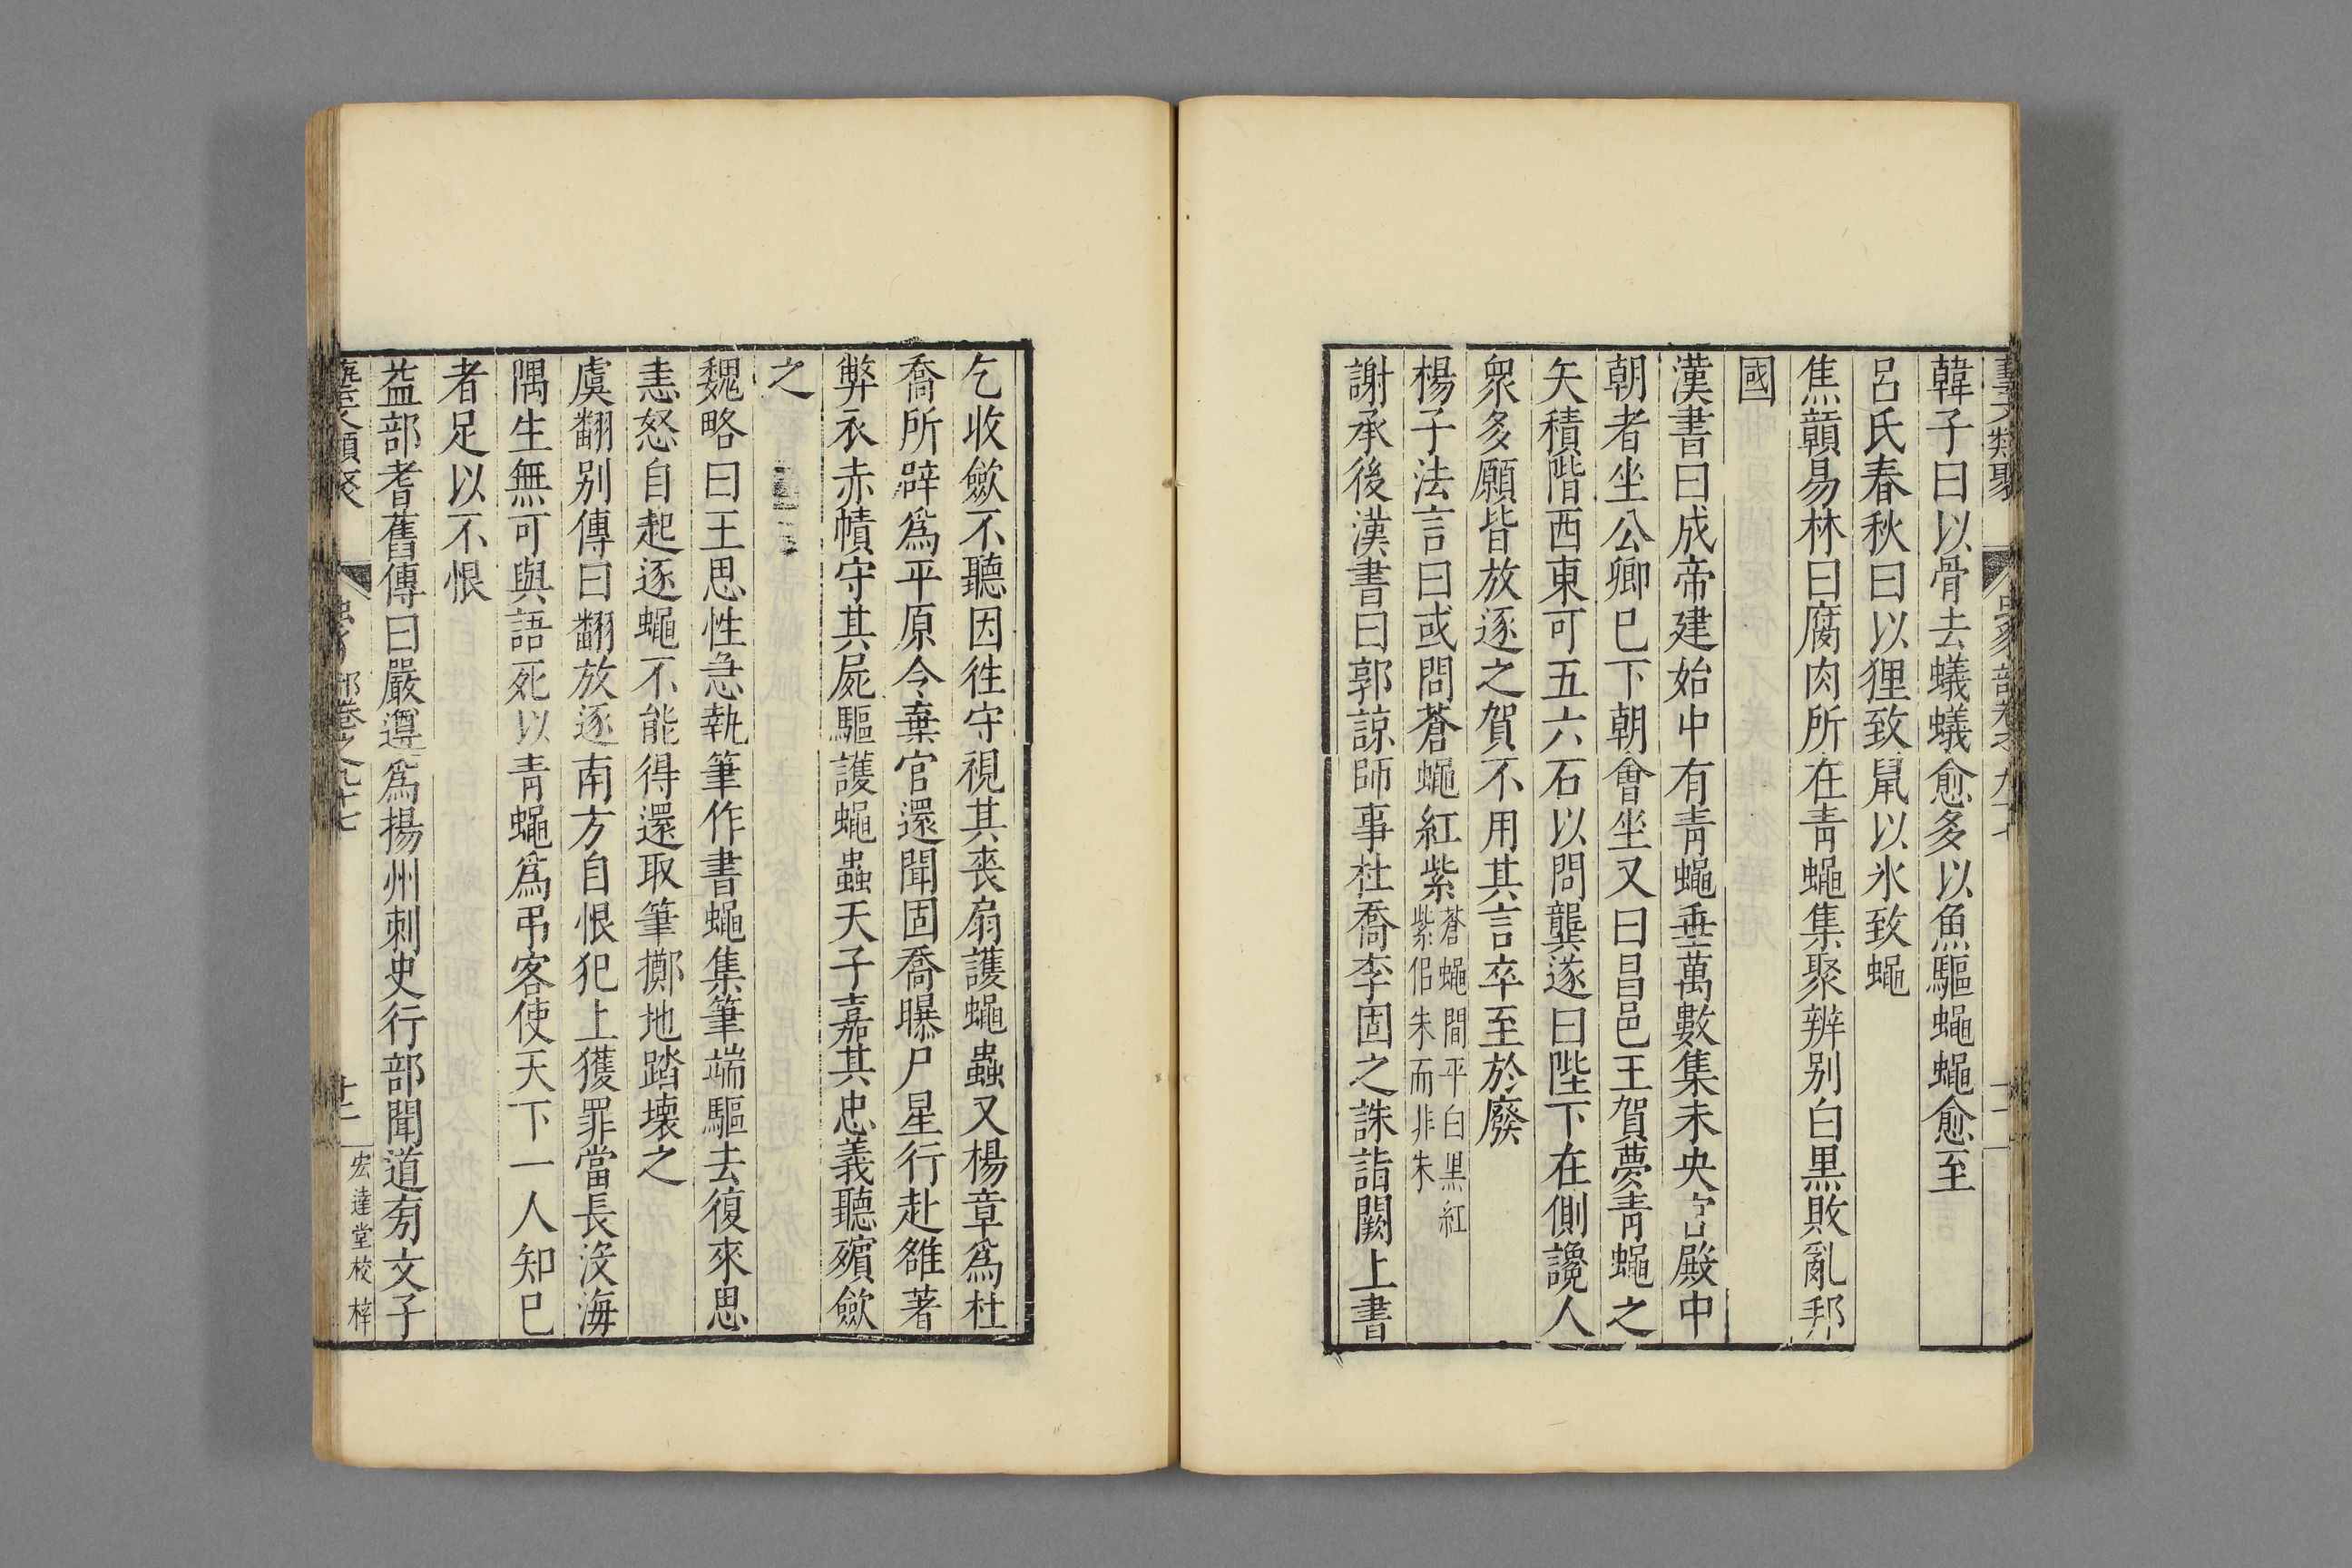 韓子曰以骨去蟻蟻愈多以魚驅蠅蠅愈至
呂氏春秋曰以狸致鼠以氷致蠅
焦贑易林曰腐肉所在青蠅集聚辨别白黒敗亂邦
國
漢書曰成帝建始中有青蠅垂萬數集未央宫殿中
朝者坐公卿巳下朝會坐又曰昌邑王賀夢青蠅之
矢積階西東可五六石以問龔遂曰陛下在側讒人
衆多願皆放逐之賀不用其言卒至於廢
楊子法言曰或問蒼蠅紅紫蒼蠅間平白黒紅
紫佀朱而非朱
謝承後漢書曰郭諒師事杜喬李固之誅詣闕上書
乞收斂不聽因徃守視其喪扇護蠅蟲又楊章爲杜
喬所辟爲平原令棄官還聞固喬曝尸星行赴雒著
弊衣赤幘守其屍驅護蠅蟲天子嘉其忠義聽殯斂
之
魏略曰王思性急執筆作書蠅集筆端驅去復來思
恚怒自起逐蠅不能得還取筆擲地踏壊之
虞翻别傳曰翻放逐南方自恨犯上獲罪當長没海
隅生無可與語死以青蠅爲弔客使天下一人知巳
者足以不恨
益部耆舊傳曰嚴遵爲揚州刺史行部聞道旁女子
藝文類聚 部卷之九十七 廿二 宏達堂校梓